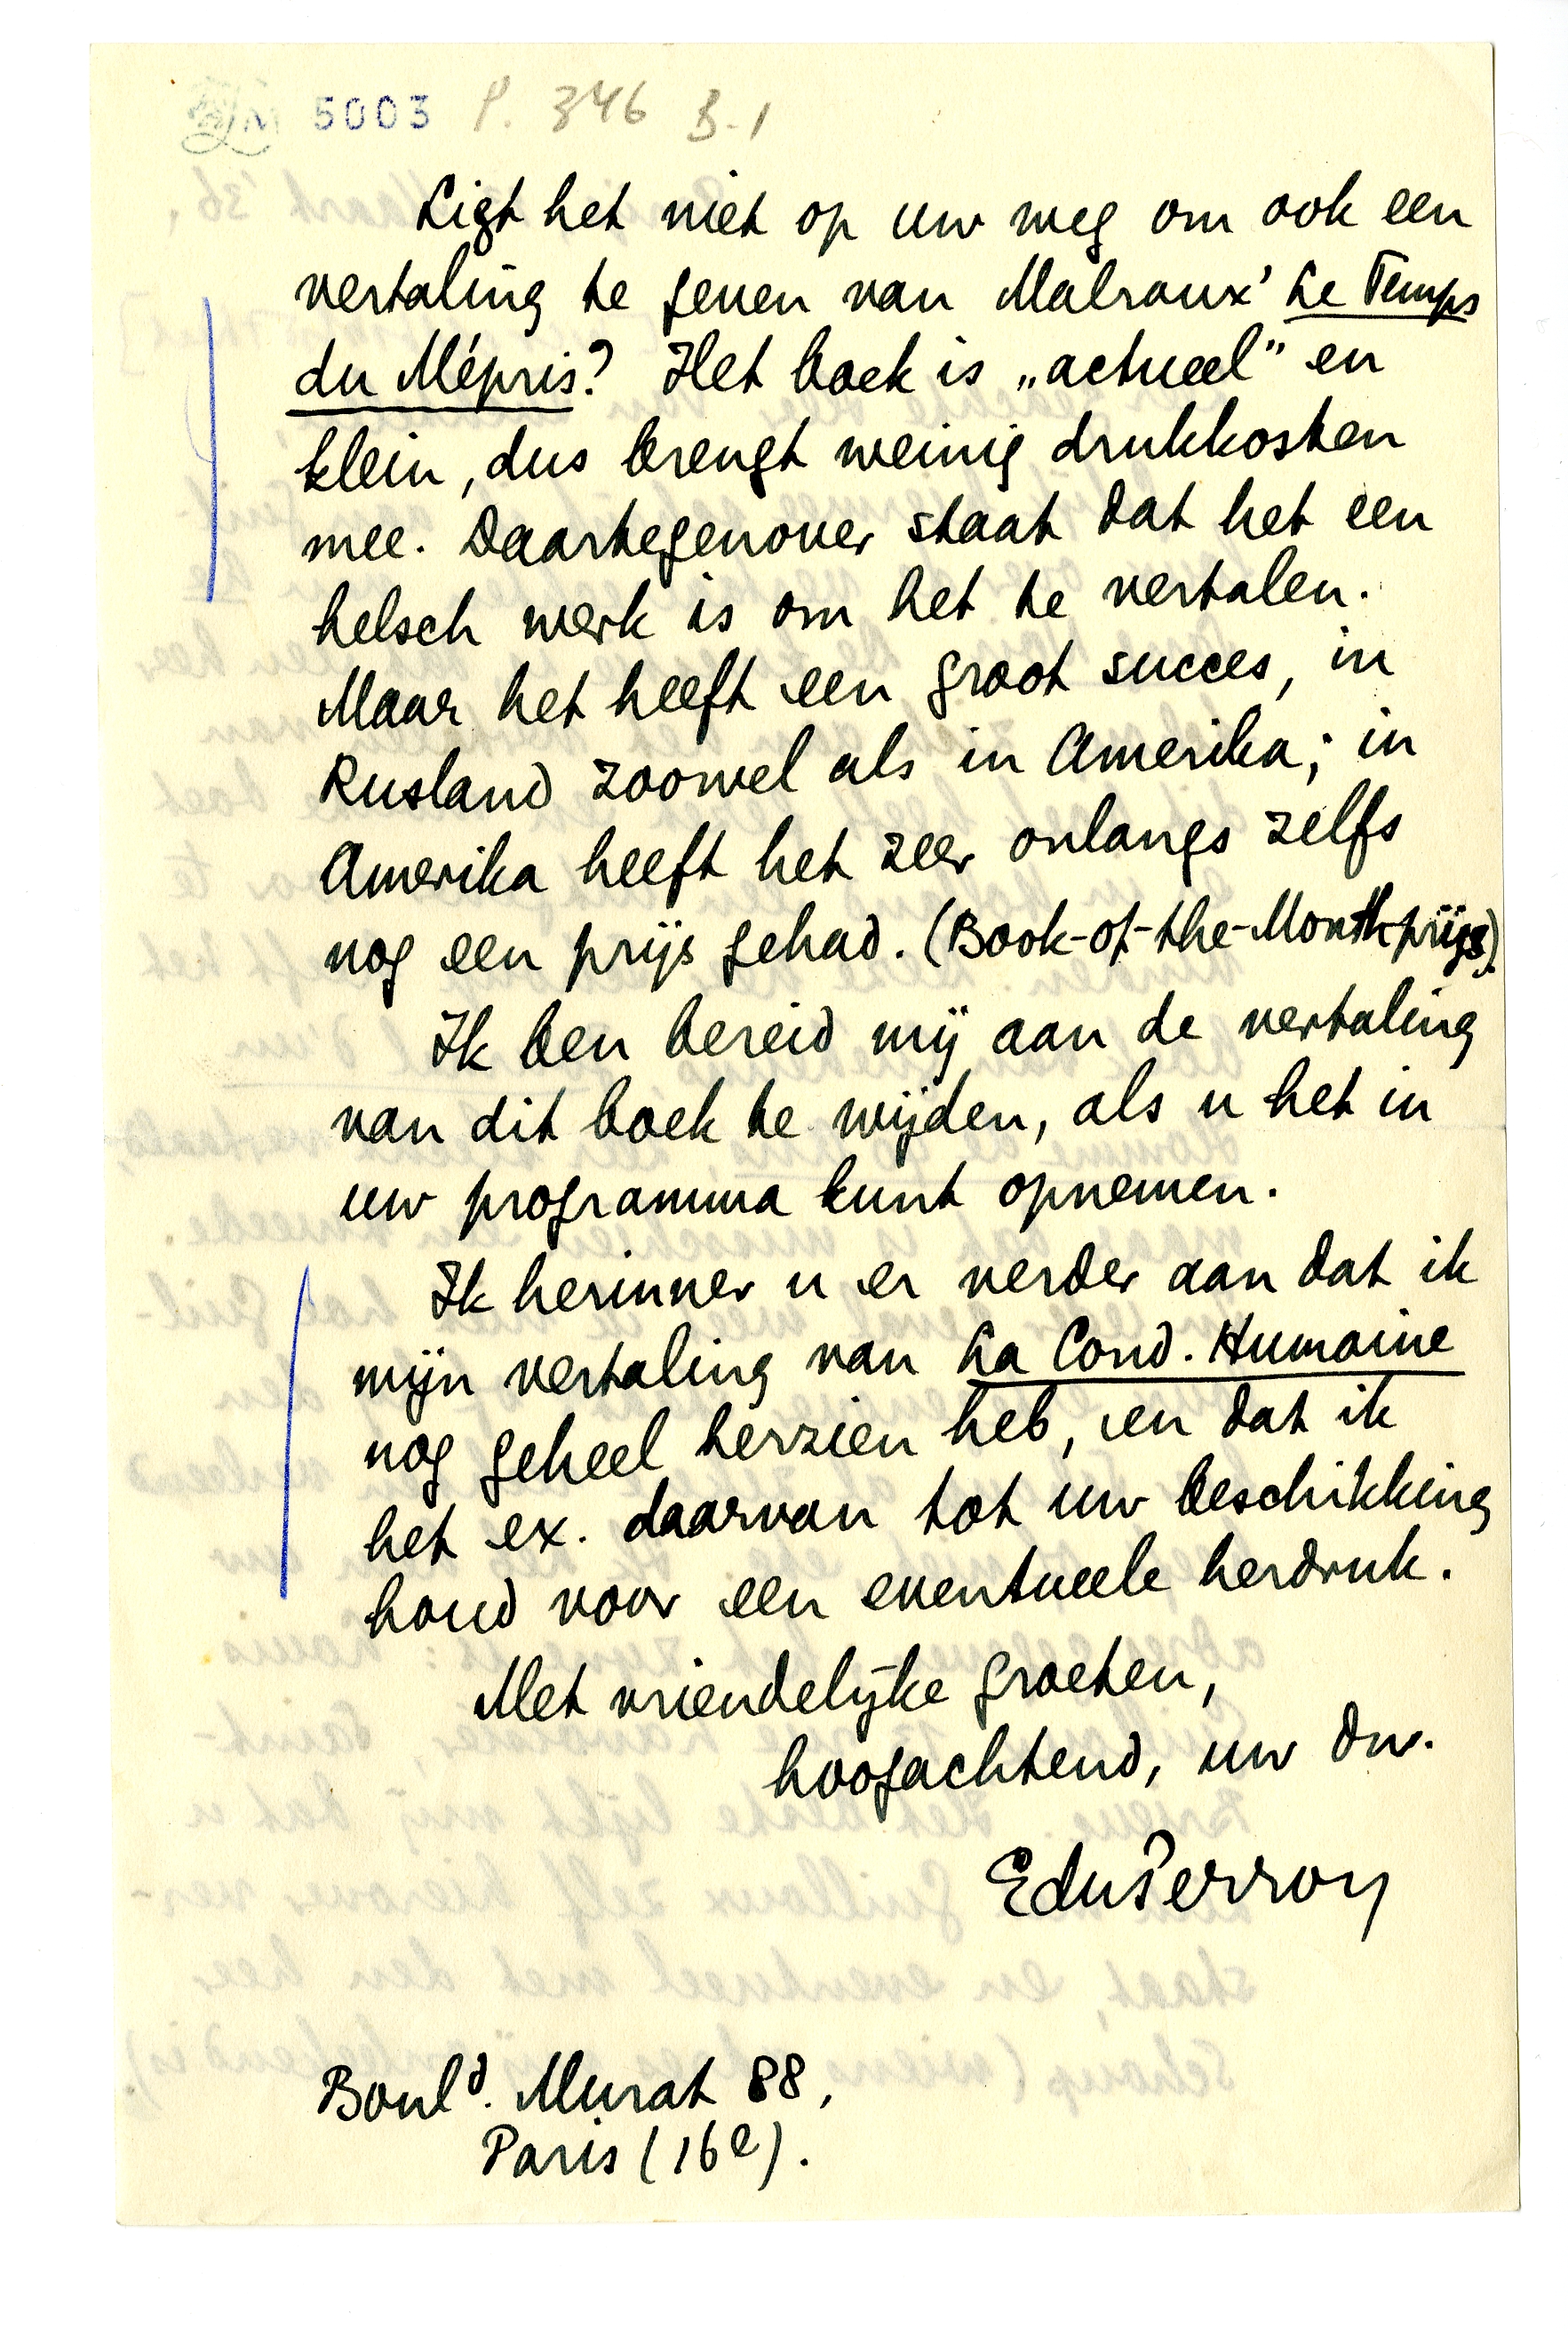 5003 P. 346 B-1
Ligt het niet op uw weg om ook een
vertaling te geven van Malraux' Le Temps
du Mépris? Het boek is „actueel” en
klein, dus brengt weinig drukkosten
mee. Daartegenover staat dat het een
helsch werk is om het te vertalen.
Maar het heeft een groot succes, in
Rusland zoowel als in Amerika; in
Amerika heeft het zeer onlangs zelfs
nog een prijs gehad. (Book-of-the-Month-prijs).
Ik ben bereid mij aan de vertaling
van dit boek te wijden, als u het in
uw programma kunt opnemen.
Ik herinner u er verder aan dat ik
mijn vertaling van La Cond. Humaine
nog geheel herzien heb, en dat ik
het ex. daarvan tot uw beschikking
houd voor een eventueele herdruk.
Met vriendelijke groeten,
hoogachtend, uw dw.
EduPerron
Bould. Murat 88,
Paris (16e).